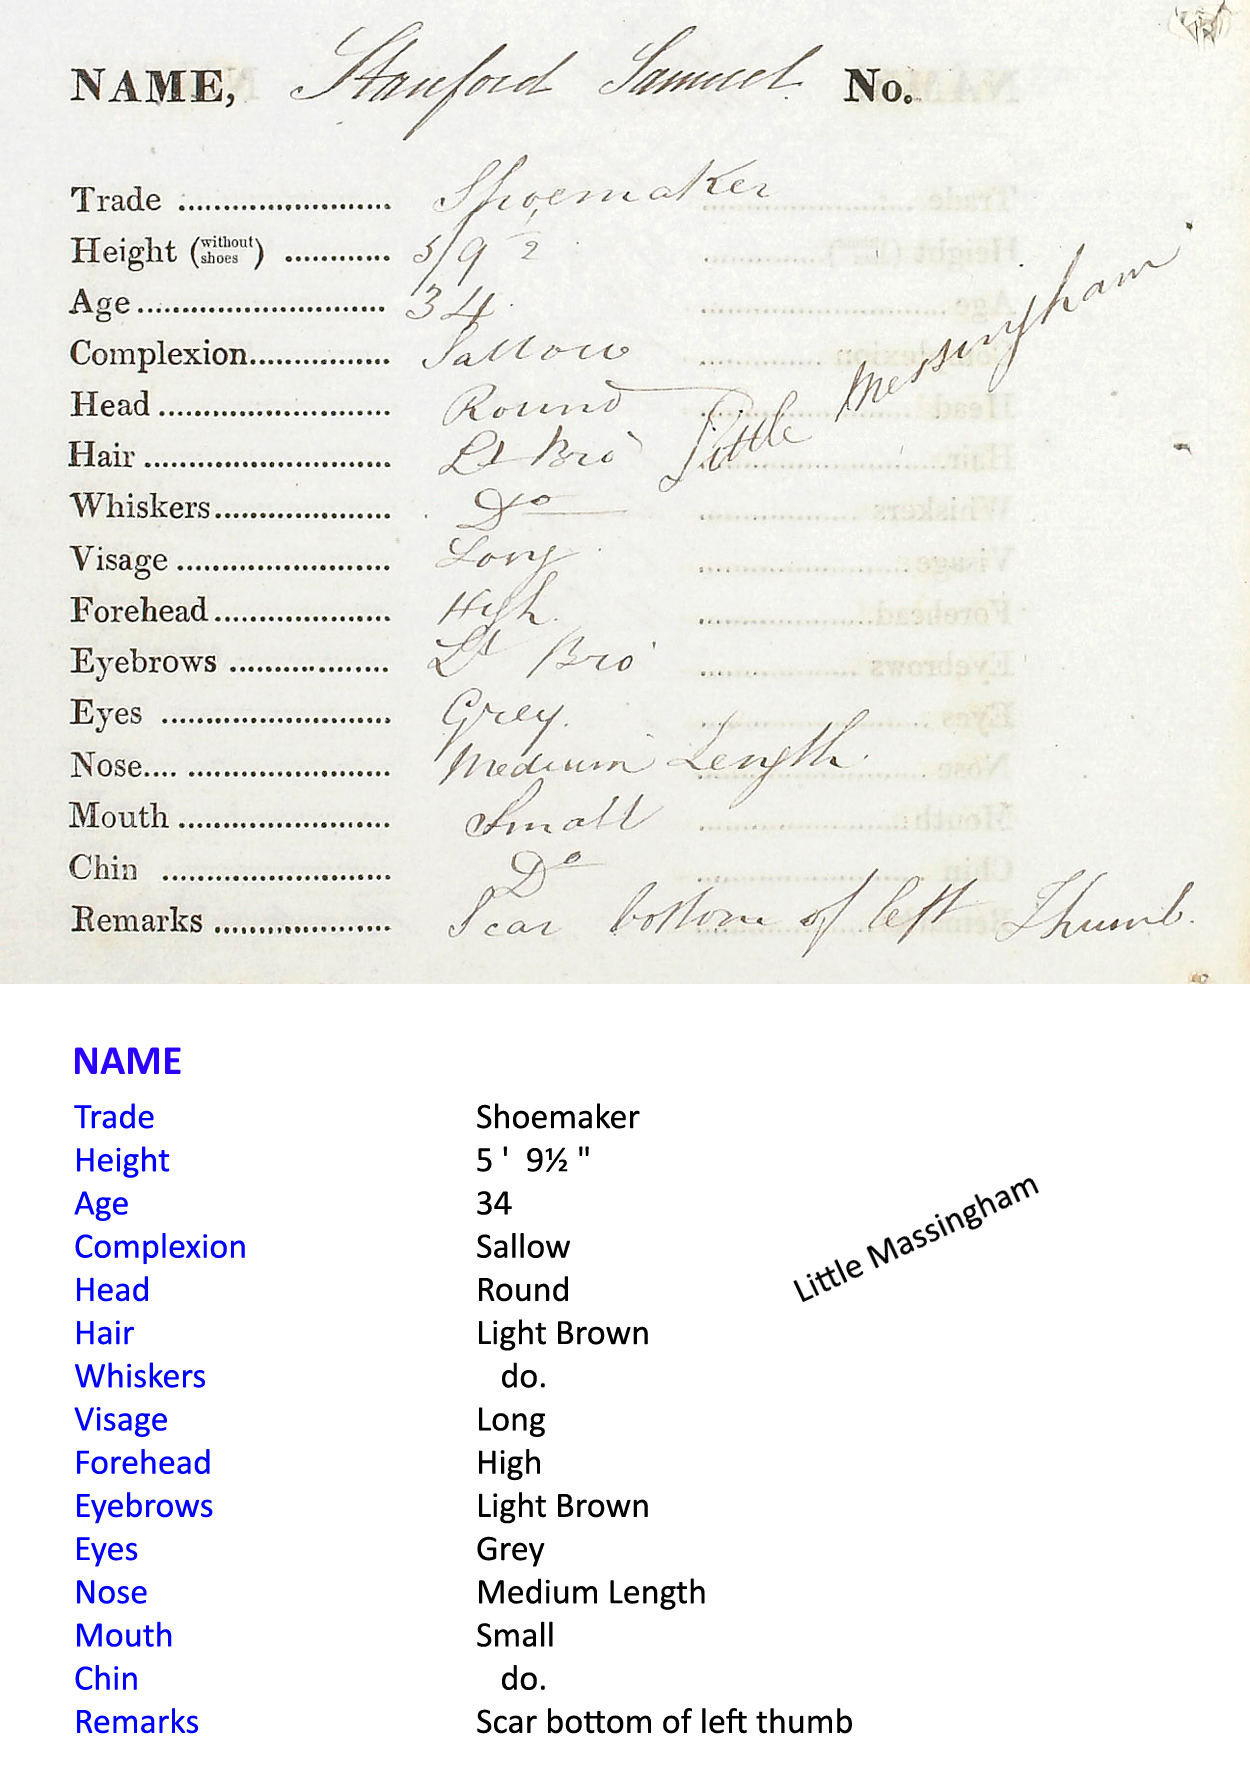 NAME, Stanford Samuel. No.
Trade ........................ Shoemaker
Height (without shoes) ............ 5/9 ½
Age............................ 34
Complexion................ Sallow
Head .......................... Round
Hair ............................ Lt Bro
Whiskers.................... Do
Little Messingham
Visage ........................ Long
Forehead.................... High.
Eyebrows .................. Lt Bro
Eyes .......................... Grey.
Nose.... ....................... Medium Length
Mouth ........................ Small
Chin .......................... Do
Remarks .................... Scar bottom of left Thumb.
NAME
Trade Shoemaker
Height 5 ' 9½ "
Age 34
Complexion Sallow
Head Round
Little Massingham
Hair Light Brown
Whiskers do.
Visage Long
Forehead High
Eyebrows Light Brown
Eyes Grey
Nose Medium Length
Mouth Small
Chin do.
Remarks Scar bottom of left thumb